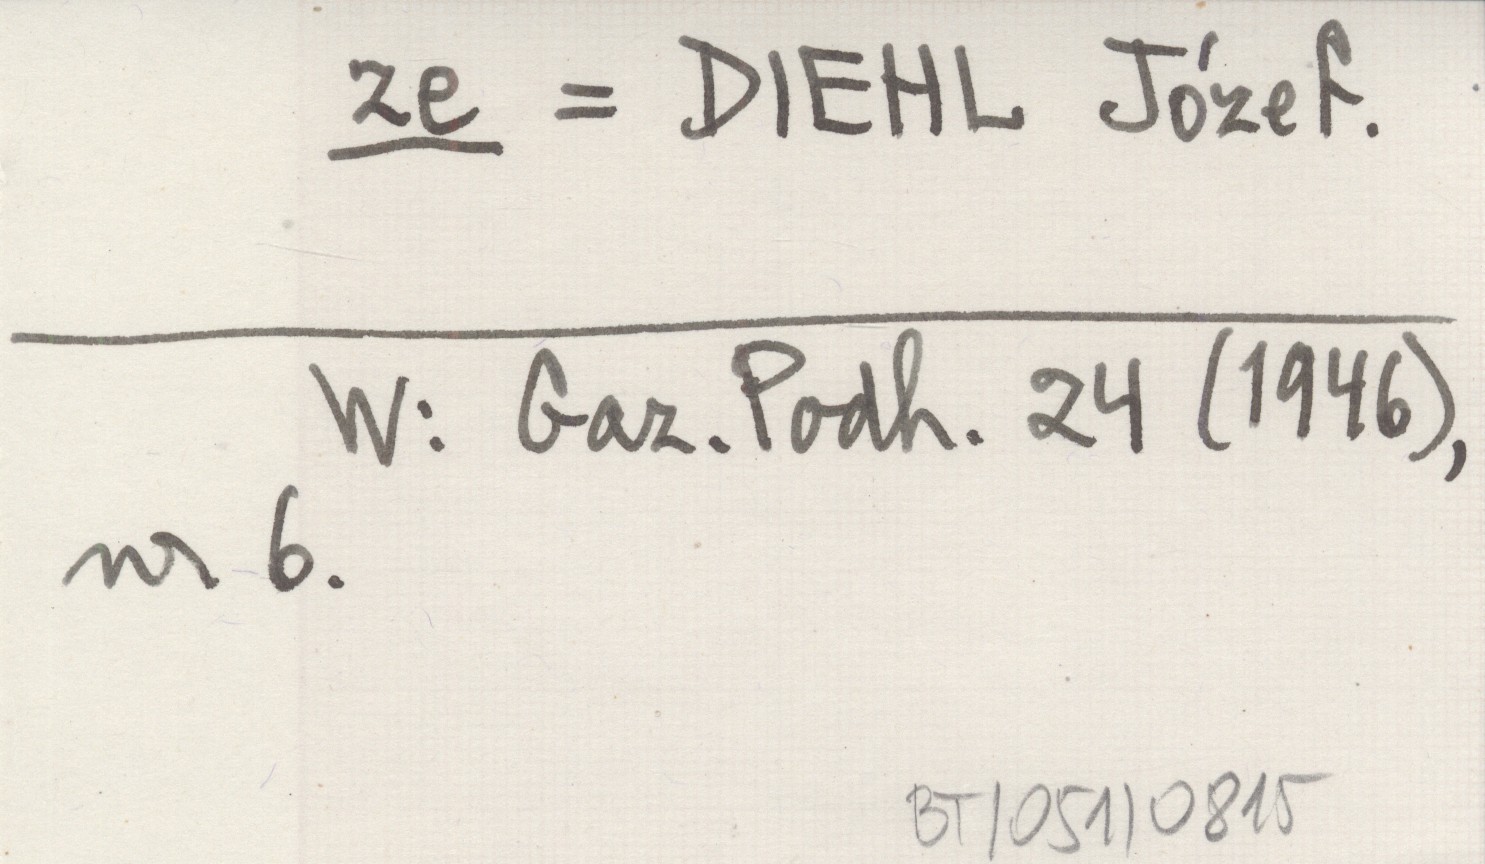 ze = DIEHL Józef.
W: Gaz. Podh. 24 (1946),
nr 6.
BT/051/0815